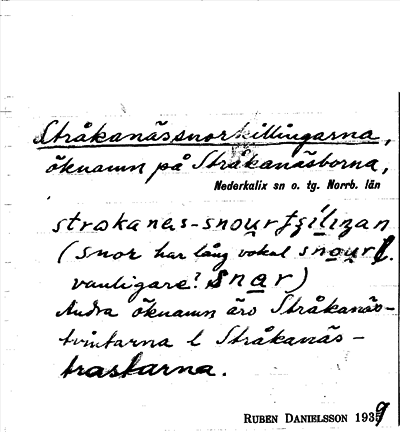 Stråkanässnorkillingarna,
öknamn på Stråkanäsborna,
Nederkalix sn o. tg. Norrb. län
strakanas-snou̲rtʃi̲lıŋan
(snor har lång vokal snou̲r
vanligare? sna̲r)
Andra öknamn äro Stråkanäs-
tvintarna l Stråkanäs-
trastarna.
RUBEN DANIELSSON 1939